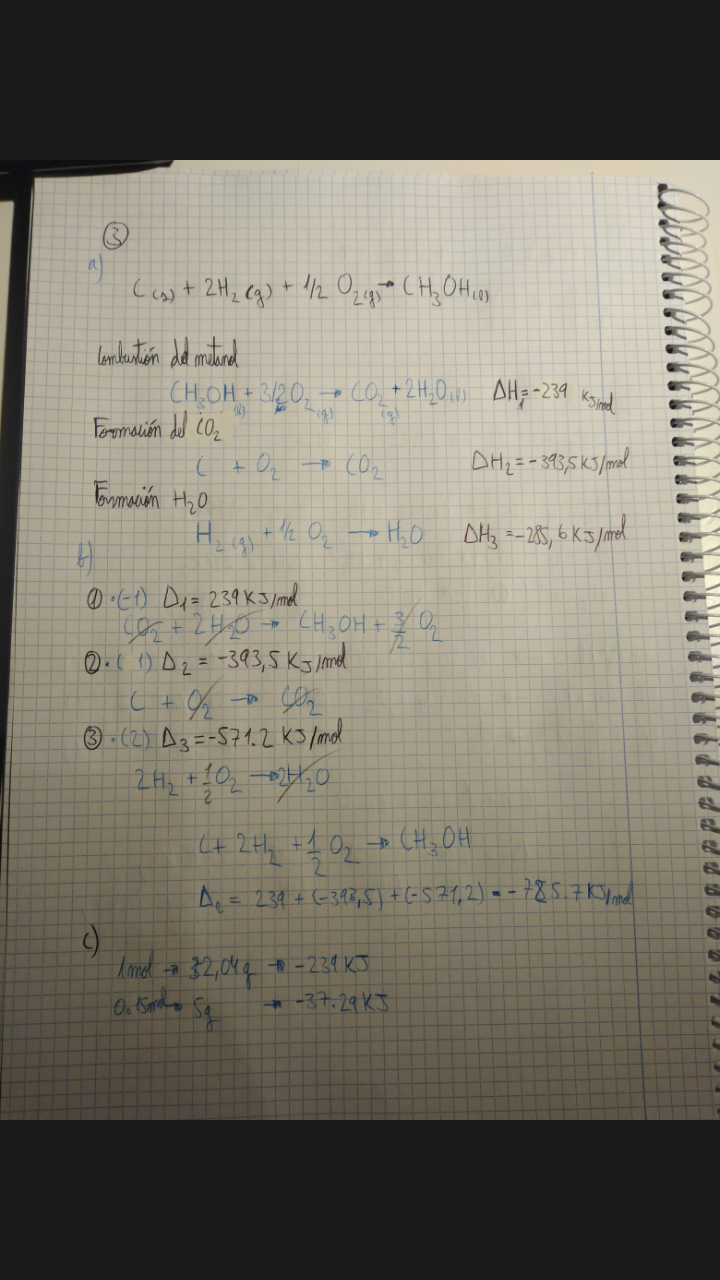 ③
a)
C(s) + 2H₂(g) + 1/2 O₂(g) → CH₃OH(l)
Combustión del metanol
CH₃OH(l) + 3/2 O₂(g) → CO₂(g) + 2H₂O(l) ΔH₁=-239 KJ/mol
Formación del CO₂
C + O₂ → CO₂ ΔH₂=-393,5 KJ/mol
Formación H₂O
H₂(g) + 1/2 O₂ → H₂O ΔH₃=-285,6 KJ/mol
b)
①·(-1) Δ₁= 239 KJ/mol
CO₂ + 2H₂O → CH₃OH + 3/2 O₂
②·( 1) Δ₂ = -393,5 KJ/mol
C + O₂ → CO₂
③·(2) Δ₃=-571.2 KJ/mol
2H₂ + 1/2 O₂ → 2H₂O
C + 2H₂ + 1/2 O₂ → CH₃OH
= 239 + (-393,5) + (-571,2) = -725.7 KJ/mol
c)
1mol → 32,04g → -239 KJ
0.15mol → 5g → -37.29 KJ